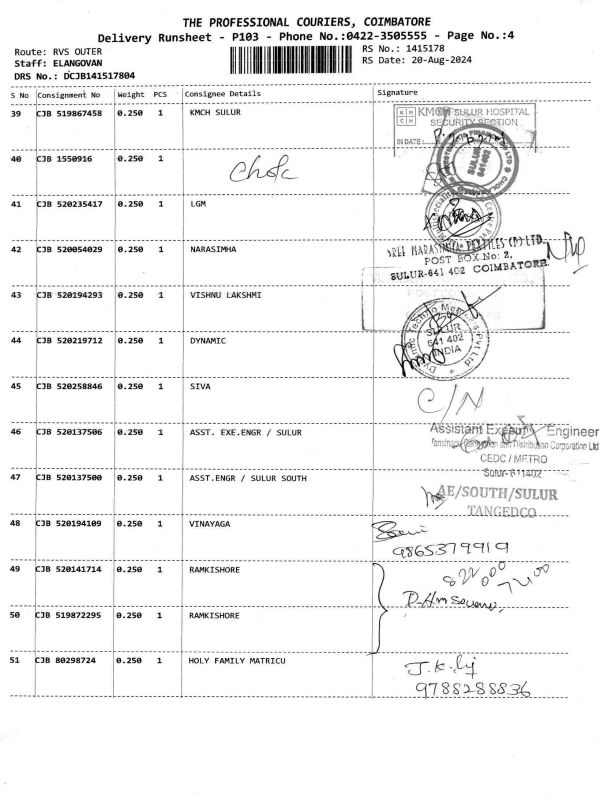 THE PROFESSIONAL COURIERS, COIMBATORE
Delivery Runsheet - P103 - Phone No.:0422-3505555 - Page No.:4
Route: RVS OUTER
RS No.: 1415178
Staff: ELANGOVAN
RS Date: 20-Aug-2024
DRS No.: DCJB141517804
S No Consignment No Weight PCS Consignee Details Signature
39 CJB 519867458 0.250 1 KMCH SULUR
KMCH SULUR HOSPITAL
SECURITY SECTION
IN DATE:
40 CJB 1550916 0.250 1
SULUR
641402
41 CJB 520235417 0.250 1 LGM
42 CJB 520054029 0.250 1 NARASIMHA
SREE NARASIMHA TEXTILES (P) LTD.
POST BOX No: 2,
SULUR-641 402 COIMBATORE.
43 CJB 520194293 0.250 1 VISHNU LAKSHMI
44 CJB 520219712 0.250 1 DYNAMIC
Dynamic Techno Medicals Pvt Ltd
SULUR
641 402
INDIA
45 CJB 520258846 0.250 1 SIVA
C/N
46 CJB 520137506 0.250 1 ASST. EXE.ENGR / SULUR
Assistant Executive Engineer
Distribution Corporation Ltd
CEDC / METRO
Sulur-611402
47 CJB 520137500 0.250 1 ASST.ENGR / SULUR SOUTH
AE/SOUTH/SULUR
TANGEDCO
48 CJB 520194109 0.250 1 VINAYAGA
9865379919
49 CJB 520141714 0.250 1 RAMKISHORE
50 CJB 519872295 0.250 1 RAMKISHORE
51 CJB 80298724 0.250 1 HOLY FAMILY MATRICU
9788288836